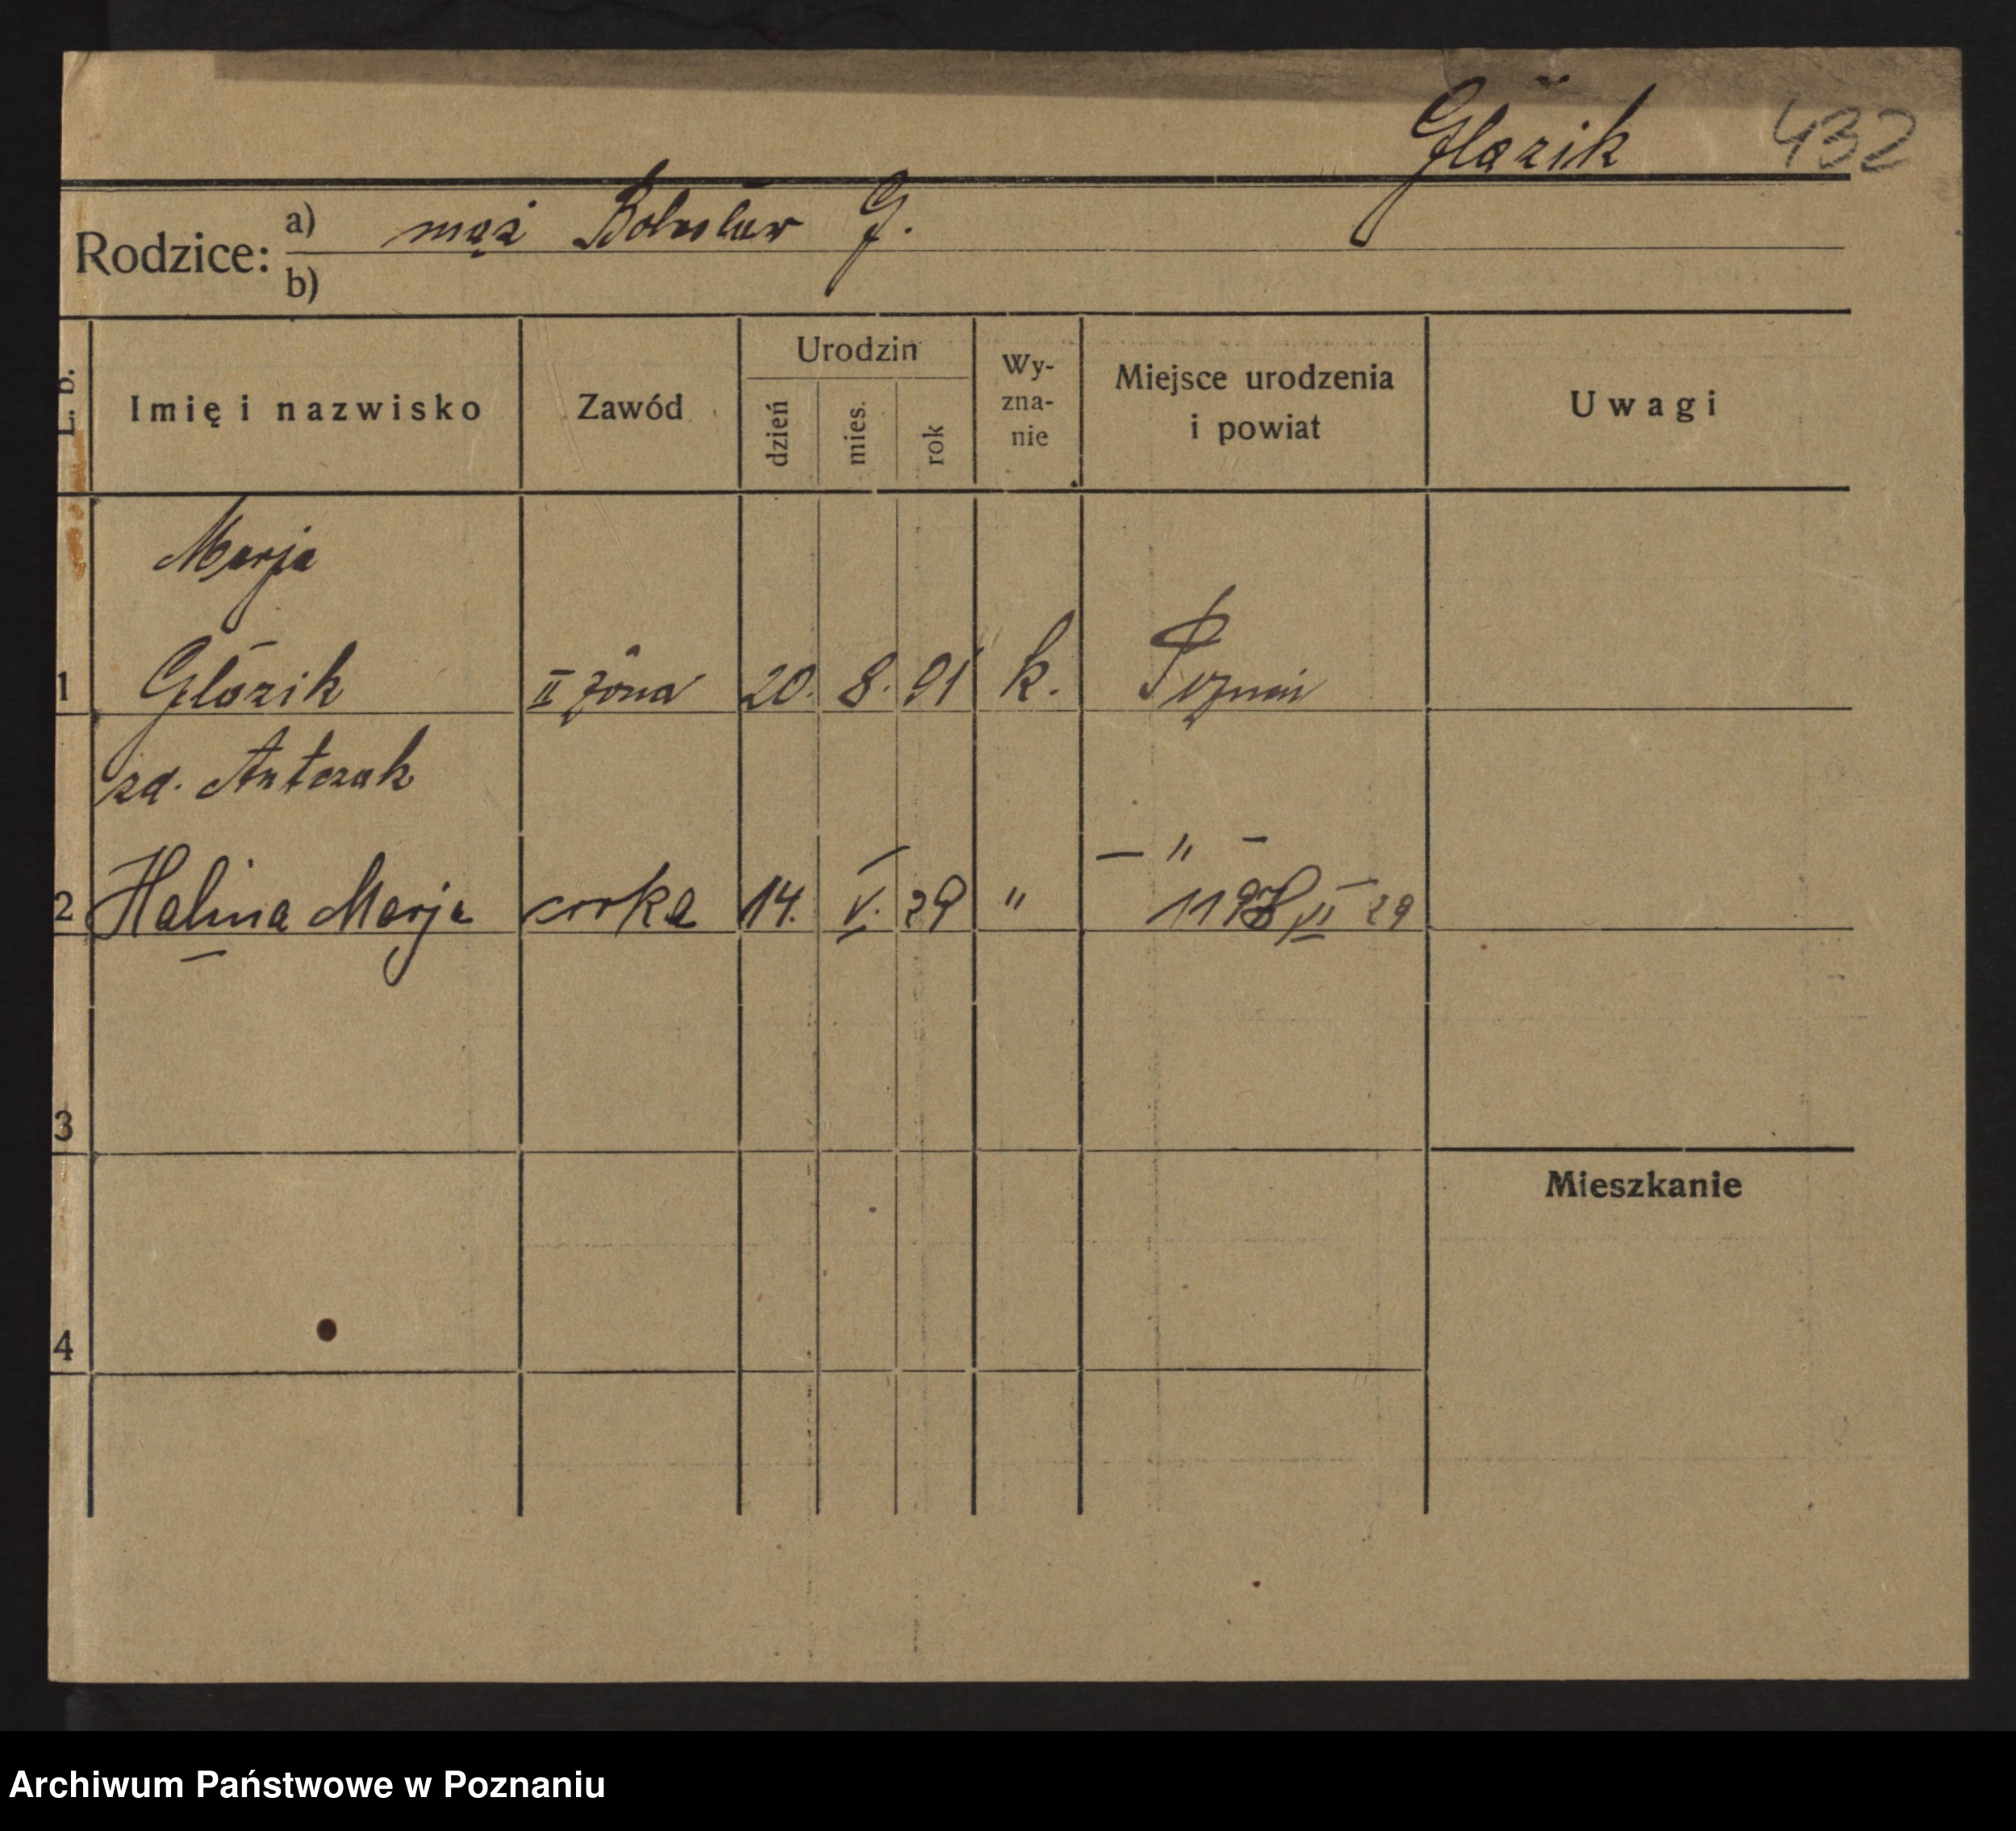 Glazik 432
Rodzice: a) mąż Bolesław G.
b)
L. b. Imię i nazwisko Zawód Urodzin dzień mies. rok Wy-zna-nie Miejsce urodzenia i powiat Uwagi
Marja
1 Glazik II żona 20. 8. 91 k. Poznań
zd. Antczak
— " —
2 Halina Marja córka 14. V. 29 " VI 29
3
Mieszkanie
4
Archiwum Państwowe w Poznaniu